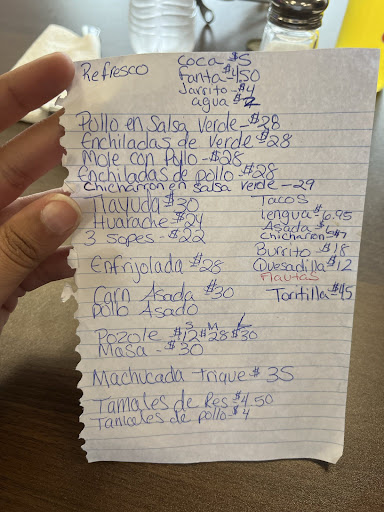 Refresco
Coca $5
Fanta $4.50
Jarrito - $4
agua $2
Pollo en Salsa Verde - $28
Enchiladas de verde - $28
Mole con Pollo - $28
Enchiladas de pollo - $28
Chicharron en Salsa verde - 29
Tlayuda $30
Huarache - $24
3 sopes - $22
Enfrijolada $28
Carn Asada $30
pollo Asado
Tacos
lengua $6.95
Asada $6
Chicharron $7
Burrito $18
Quesadilla $12
Flautas
Tortilla $45
S M L
Pozole $12 $28 $30
Masa - $30
Machucada trique $35
Tamales de Res $4.50
Tamales de pollo $4